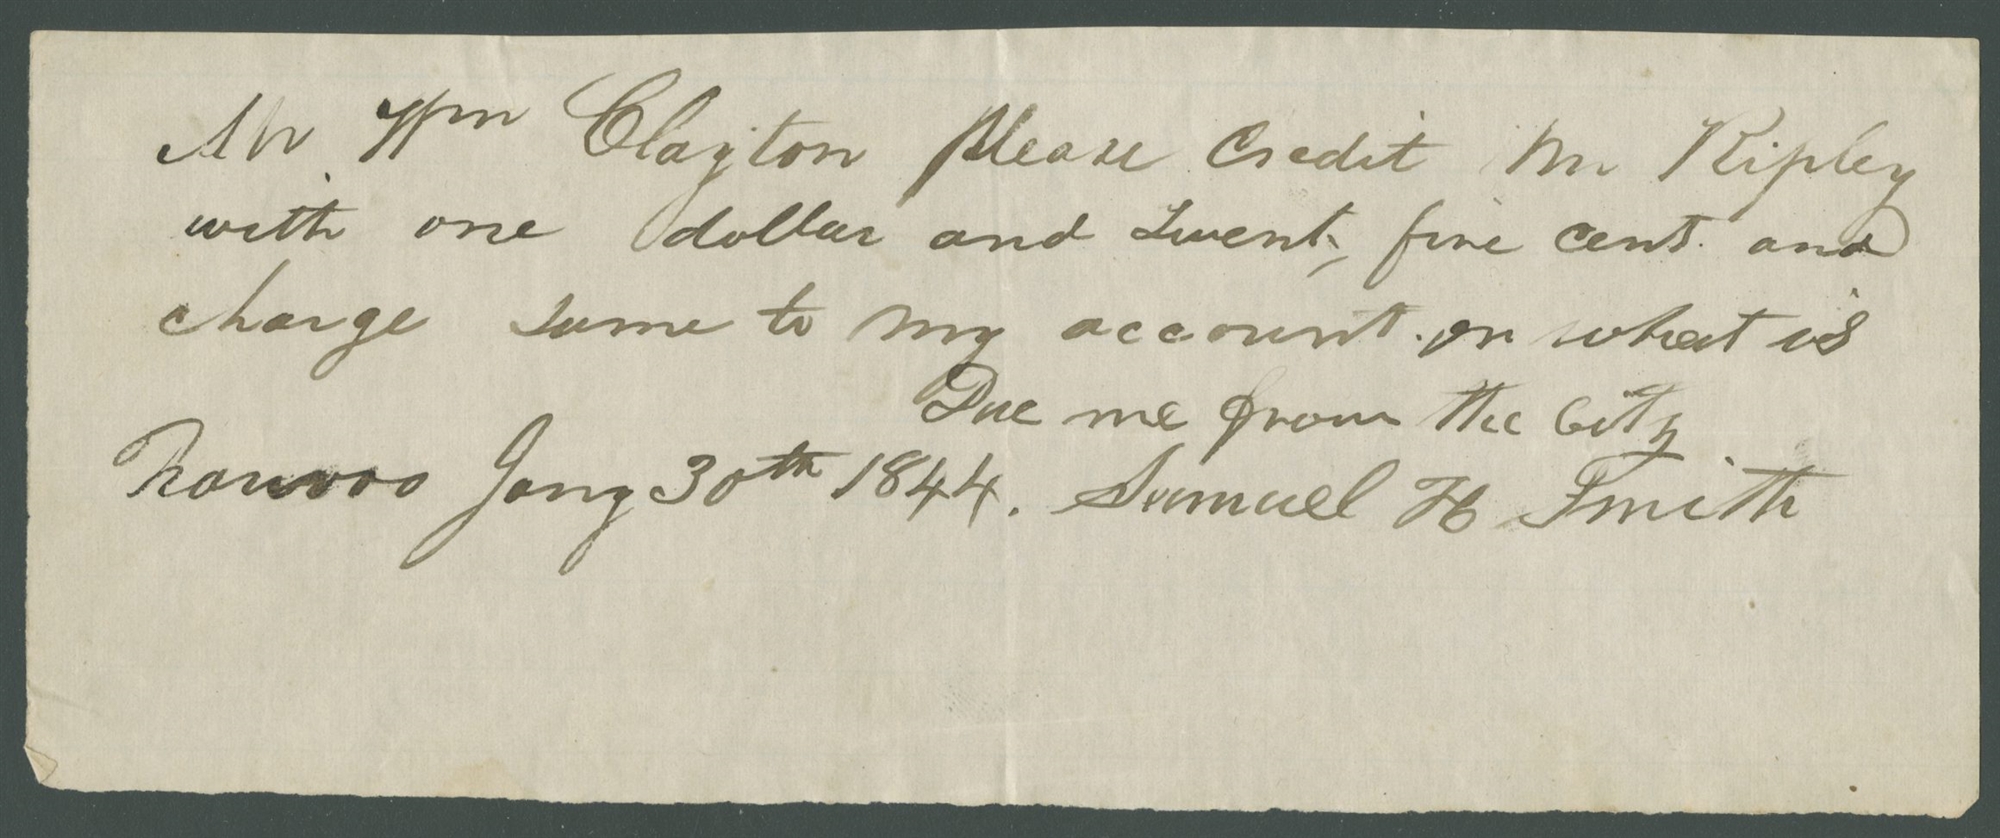 Mr Wm Clayton Please Credit Mr Ripley
with one dollar and twenty five cent. and
charge same to my account. or what is
Due me from the City
Nauvoo Jany 30th 1844. Samuel H Smith